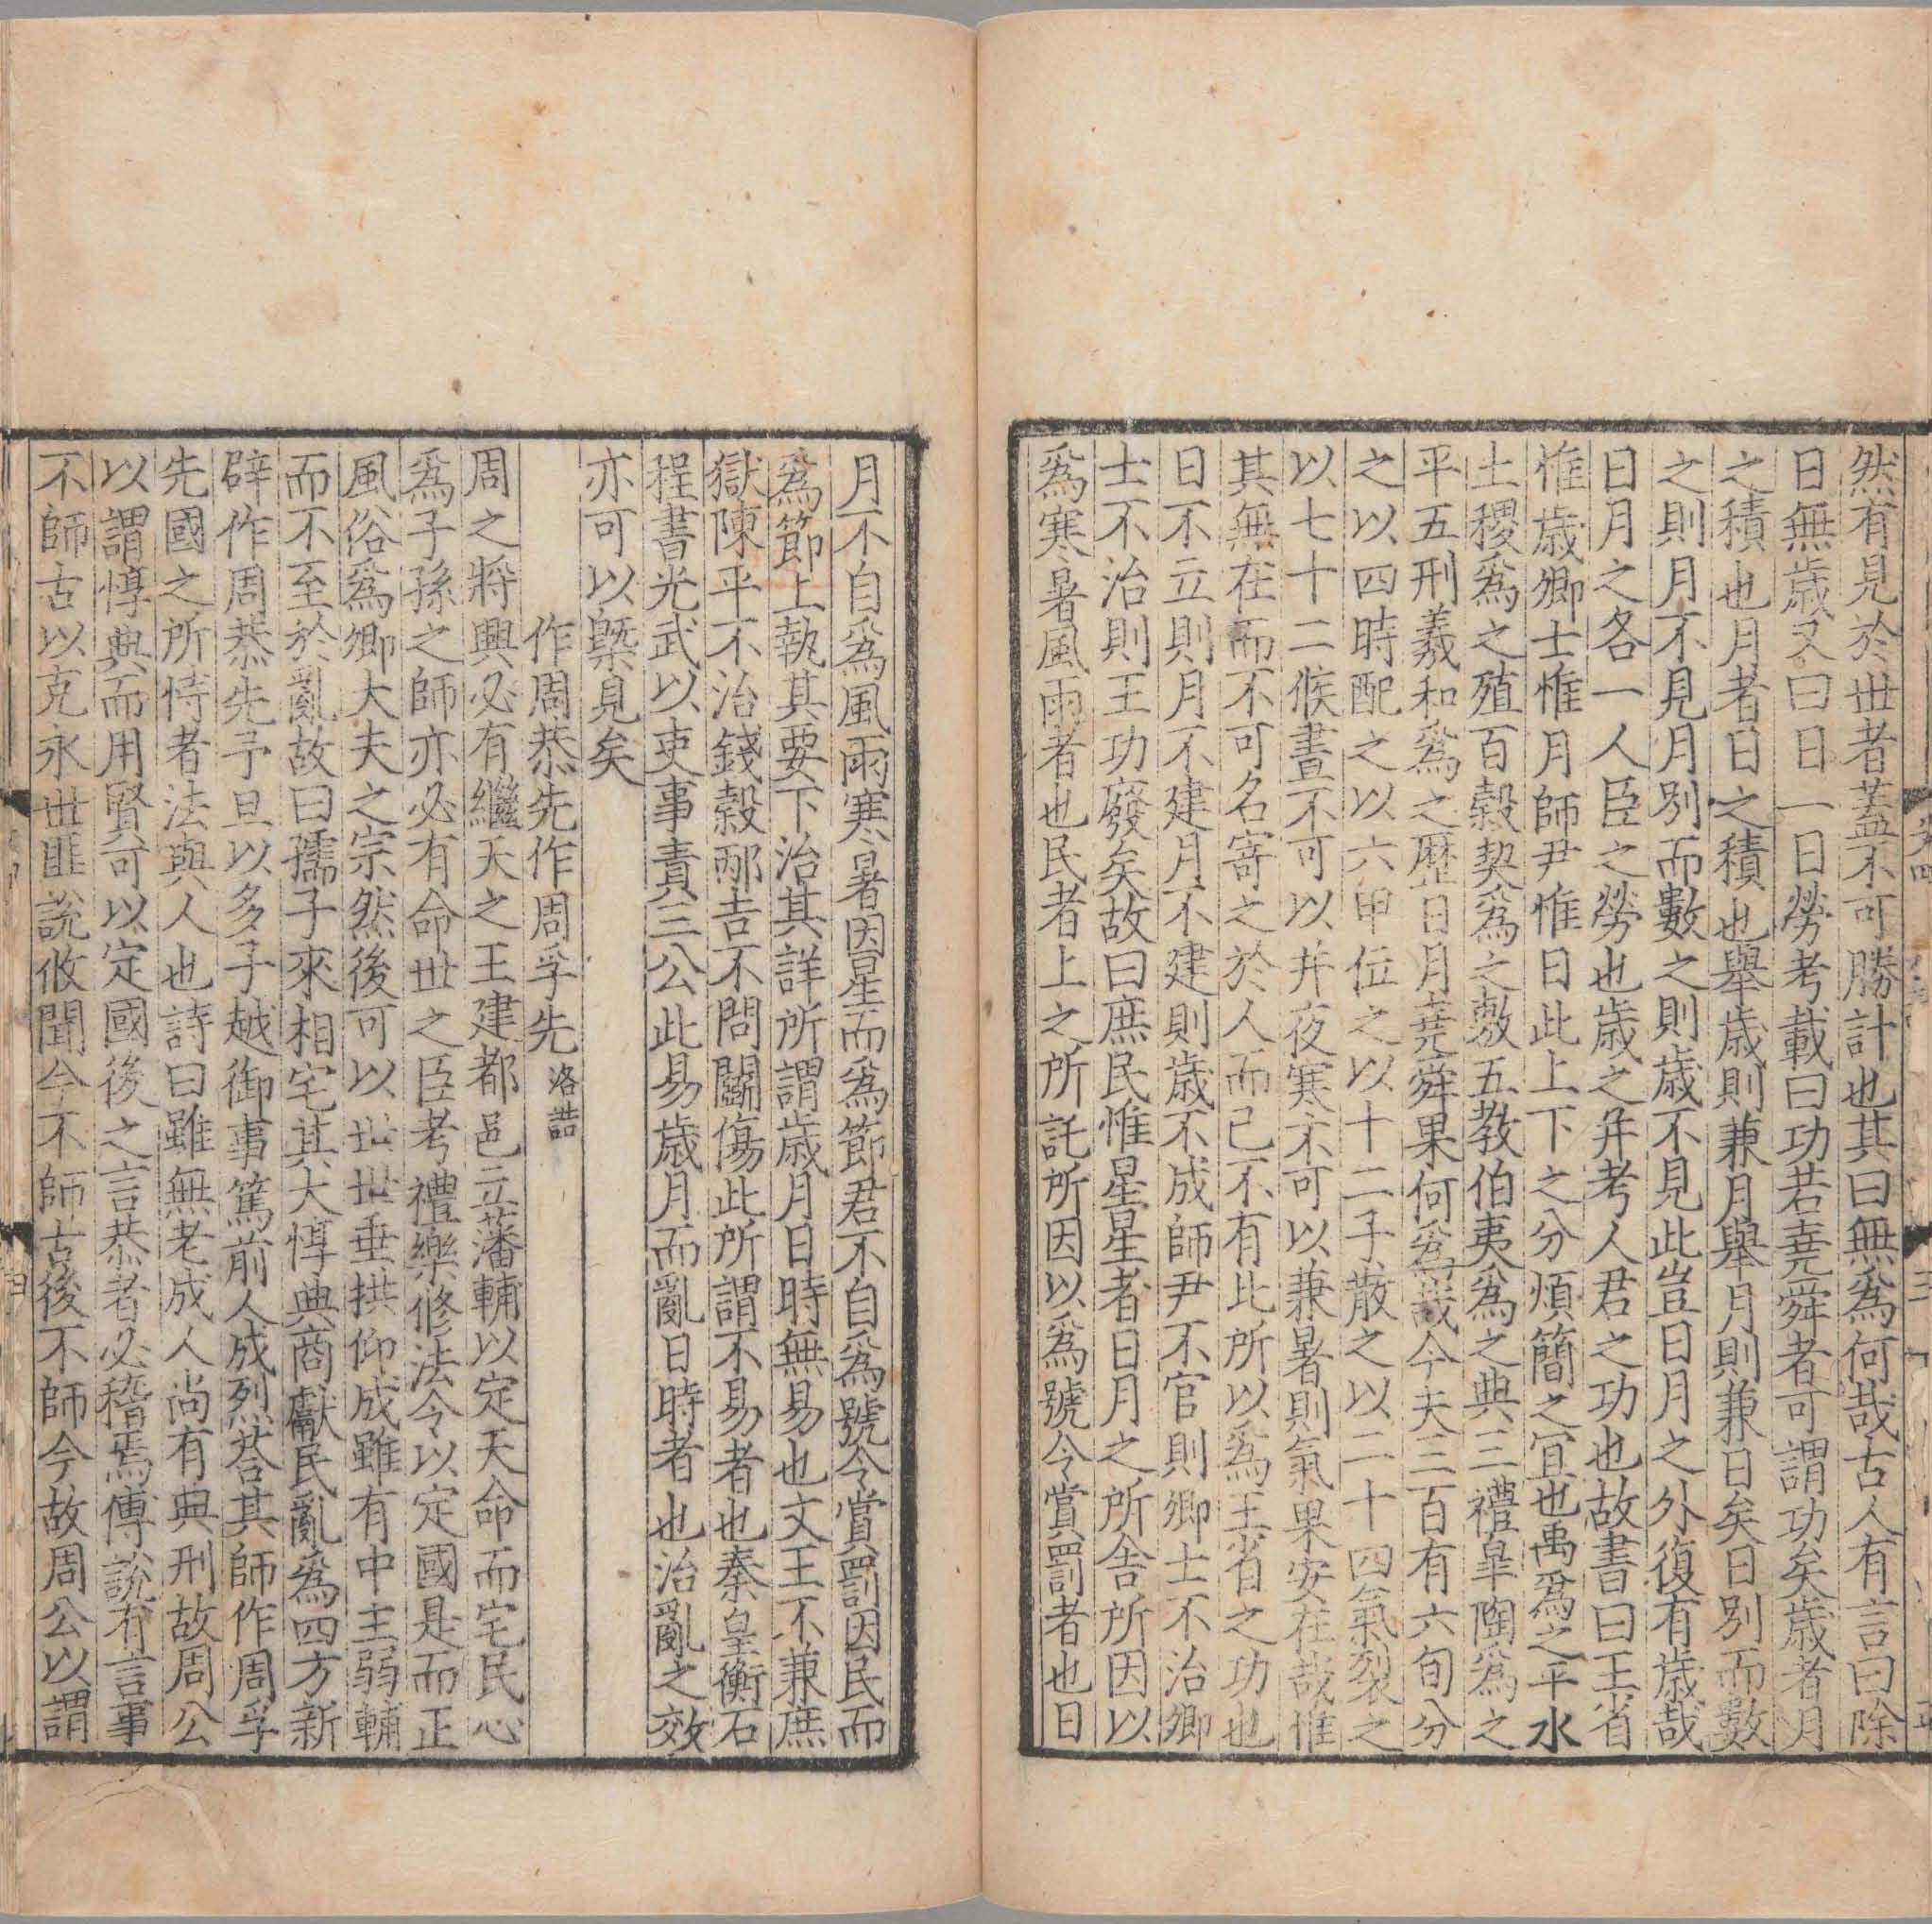 然有見於世者蓋不可勝計也其曰無爲何哉古人有言曰除
日無歲又曰日一日勞考載曰功若堯舜者可謂功矣歲者月
之積也月者日之積也舉歲則兼月舉月則兼日矣日別而數
之則月不見月別而數之則歲不見此豈日月之外復有歲哉
日月之各一人臣之勞也歲之并考人君之功也故書曰王省
惟歲卿士惟月師尹惟日此上下之分煩簡之宜也禹爲之平水
土稷爲之殖百穀契爲之敷五教伯夷爲之典三禮皐陶爲之
平五刑羲和爲之歷日月堯舜果何爲哉今夫三百有六旬分
之以四時配之以六甲位之以十二子散之以二十四氣裂之
以七十二候晝不可以并夜寒不可以兼暑則氣果安在哉惟
其無在而不可名寄之於人而已不有此所以爲王省之功也
日不立則月不建月不建則歲不成師尹不官則卿士不治卿
士不治則王功廢矣故曰庶民惟星星者日月之所舍所因以
爲寒暑風雨者也民者上之所託所因以爲號令賞罰者也日
月不自爲風雨寒暑因星而爲節君不自爲號令賞罰因民而
爲節上執其要下治其詳所謂歲月日時無易也文王不兼庶
獄陳平不治錢穀邴吉不問鬭傷此所謂不易者也秦皇衡石
程書光武以吏事責三公此易歲月而亂日時者也治亂之效
亦可以槩見矣
作周恭先作周孚先 洛誥
周之將興必有繼天之王建都邑立藩輔以定天命而宅民心
爲子孫之師亦必有命世之臣考禮樂修法令以定國是而正
風俗爲卿大夫之宗然後可以世世垂拱仰成雖有中主弱輔
而不至於亂故曰孺子來相宅其大惇典商獻民亂爲四方新
辟作周恭先予旦以多子越御事篤前人成烈荅其師作周孚
先國之所恃者法與人也詩曰雖無老成人尚有典刑故周公
以謂惇典而用賢可以定國後之言恭者必稽焉傅說有言事
不師古以克永世匪說攸聞今不師古後不師今故周公以謂